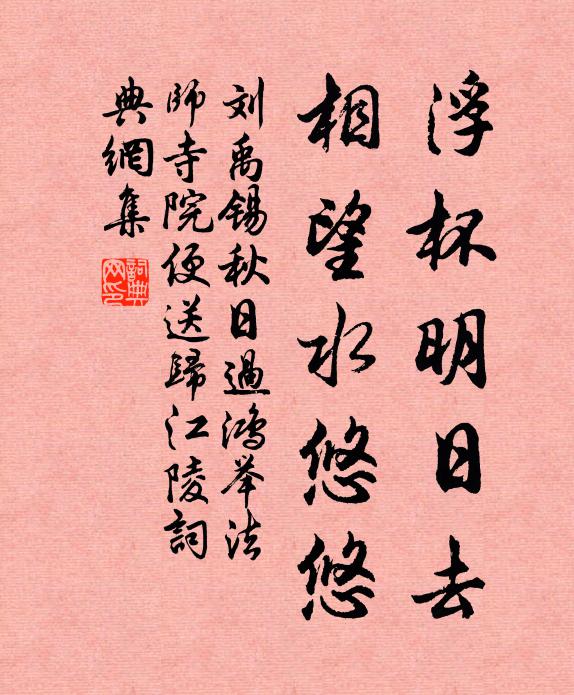 浮杯明日去
相望水悠悠
刘禹锡秋日過鴻举法
師寺院便送歸江陵詞
典網集
詞典网印